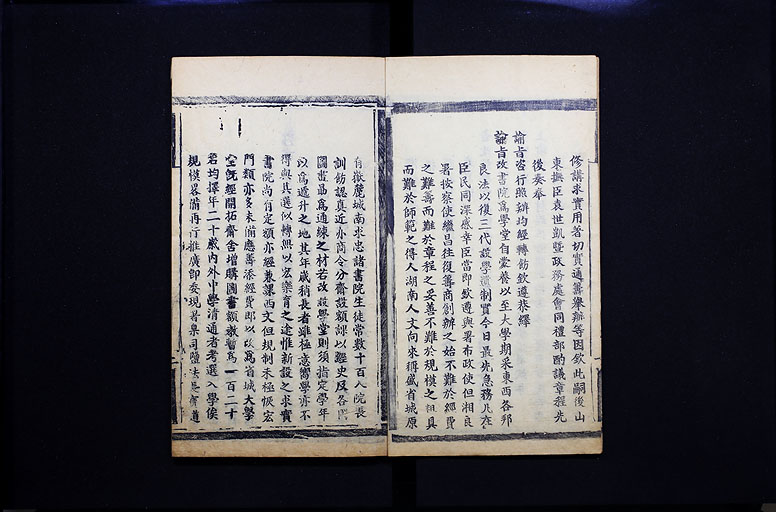 修講求實用著切實通籌舉辦等因欽此嗣後山
東撫臣袁世凱暨政務處會同禮部酌議章程先
後奏奉
諭旨咨行照辦均經轉飭欽遵恭繹
諭旨改書院爲學堂自蒙養以至大學期永東西各邦
良法以復三代設學漢制實今日最先急務凡在
臣民同深感幸臣當即欽遵與署布政使但湘良
署按察使繼昌往復籌商創辦之始不難於經費
之難籌而難於章程之妥善不難於規模之粗具
而難於師範之得人湖南人文向來稱盛省城原
有嶽麓城南求忠諸書院生徒常數十百人院長
訓飭認真近亦商令分齋設額課以經史及各
圖書畾爲通練之材若改設學堂則須指定學年
以爲遞升之地其年歲稍長者雖極意嚮學亦不
得與其選似轉無以宏樂育之途惟新設之求實
書院尚有定額亦經兼課西文但規制未極恢宏
門類亦多未備應籌添經費即以改爲省城大學
堂旣經開拓齋舍增購圖書額數暫爲一百二十
名均擇年二十歲內外中學清通者考選入學俟
規模畧備再行推廣即委現署臬司鹽法長寶道